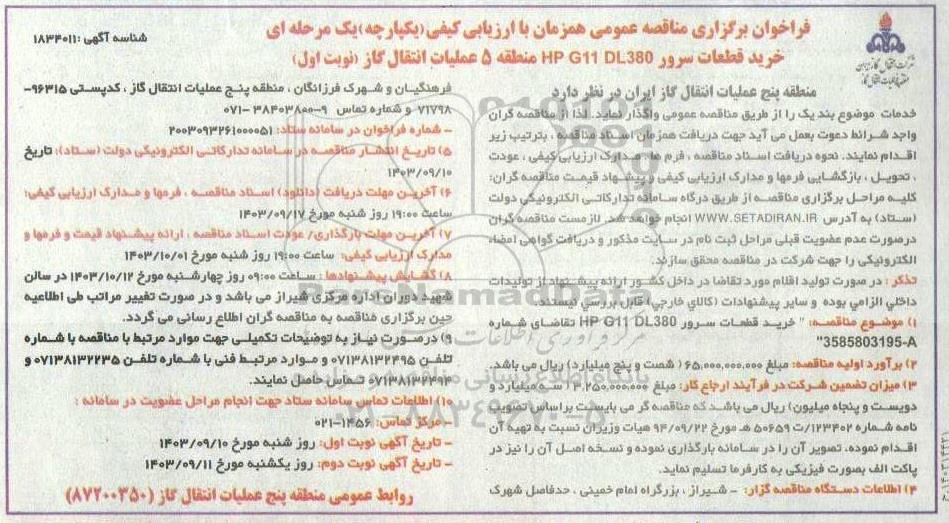 فراخوان برگزاری مناقصه عمومی همزمان با ارزیابی کیفی (یکپارچه) یک مرحله ای
خرید قطعات سرور HP G11 DL380 منطقه ۵ عملیات انتقال گاز (نوبت اول)
شناسه آگهی: ۱۸۳۴۰۱۱
منطقه پنج عملیات انتقال گاز ایران در نظر دارد
خدمات موضوع بند یک را از طریق مناقصه عمومی واگذار نماید. لذا از مناقصه گران
واجد شرائط دعوت بعمل می آید جهت دریافت همزمان اسناد مناقصه ، بترتیب زیر
اقدام نمایند. نحوه دریافت اسناد مناقصه ، فرم ها و مدارک ارزیابی کیفی ، عودت
، تحویل ، بازگشایی فرمها و مدارک ارزیابی کیفی و پیشنهاد قیمت مناقصه گران:
کلیه مراحل برگزاری مناقصه از طریق درگاه سامانه تدارکاتی الکترونیکی دولت
(ستاد) به آدرس WWW.SETADIRAN.IR انجام خواهد شد. لازمست مناقصه گران
درصورت عدم عضویت قبلی مراحل ثبت نام در سایت مذکور و دریافت گواهی امضاء
الکترونیکی را جهت شرکت در مناقصه محقق سازند.
تذکر : در صورت تولید اقلام مورد تقاضا در داخل کشور ارائه پیشنهاد از تولیدات
داخلي الزامي بوده و سایر پیشنهادات (کالاي خارجي) قابل بررسي نیستند
۱) موضوع مناقصه: " خرید قطعات سرور HP G11 DL380 تقاضای شماره
3585803195-A"
۲) برآورد اولیه مناقصه: مبلغ ۶۵,۰۰۰,۰۰۰,۰۰۰ ( شصت و پنج میلیارد) ریال می باشد.
۳) میزان تضمین شرکت در فرآیند ارجاع کار: مبلغ ۳,۲۵۰,۰۰۰,۰۰۰ (سه میلیارد و
دویست و پنجاه میلیون) ریال می باشد که مناقصه گر می بایست بر اساس تصویب
نامه شماره ۱۲۳۴۰۲/ت ۵۰۶۵۹ هـ مورخ ۹۴/۰۹/۲۲ هیات وزیران نسبت به تهیه آن
اقدام نموده، تصویر آن را در سامانه بارگذاری نموده و نسخه اصل آن را نیز در
پاکت الف بصورت فیزیکی به کارفرما تسلیم نماید.
۴) اطلاعات دستگاه مناقصه گزار: - شیراز ، بزرگراه امام خمینی ، حدفاصل شهرک
فرهنگیان و شهرک فرزانگان ، منطقه پنج عملیات انتقال گاز ، کدپستی ۹۶۳۱۵-
۷۱۷۹۸ و شماره تماس ۹-۳۸۴۰۳۸۰۰-۰۷۱
- شماره فراخوان در سامانه ستاد: ۲۰۰۳۰۹۳۲۶۱۰۰۰۰۵۱
۵) تاریخ انتشار مناقصه در سامانه تدارکاتی الکترونیکی دولت (ستاد): تاریخ
۱۴۰۳/۰۹/۱۰
۶) آخرین مهلت دریافت (دانلود) اسناد مناقصه ، فرمها و مدارک ارزیابی کیفی:
ساعت ۱۹:۰۰ روز شنبه مورخ ۱۴۰۳/۰۹/۱۷
۷) آخرین مهلت بارگذاری/ عودت اسناد مناقصه ، ارائه پیشنهاد قیمت و فرمها و
مدارک ارزیابی کیفی: ساعت ۱۹:۰۰ روز شنبه مورخ ۱۴۰۳/۱۰/۰۱
۸) گشایش پیشنهادها : ساعت ۰۹:۰۰ روز چهارشنبه مورخ ۱۴۰۳/۱۰/۱۲ در سالن
شهید دوران اداره مرکزی شیراز می باشد و در صورت تغییر مراتب طی اطلاعیه
حین برگزاری مناقصه به مناقصه گران اطلاع رسانی می گردد.
۹) در صورت نیاز به توضیحات تکمیلی جهت موارد مرتبط با مناقصه با شماره
تلفن ۰۷۱۳۸۱۳۲۴۹۵ و موارد مرتبط فنی با شماره تلفن ۰۷۱۳۸۱۳۲۲۳۵ و
۰۷۱۳۸۱۳۲۴۹۲ تماس حاصل نمایند.
۱۰) اطلاعات تماس سامانه ستاد جهت انجام مراحل عضویت در سامانه :
- مرکز تماس: ۱۴۵۶-۰۲۱
- تاریخ آگهی نوبت اول: روز شنبه مورخ ۱۴۰۳/۰۹/۱۰
- تاریخ آگهی نوبت دوم: روز یکشنبه مورخ ۱۴۰۳/۰۹/۱۱
روابط عمومی منطقه پنج عملیات انتقال گاز (۸۷۲۰۰۳۵۰)
ParsNamadData